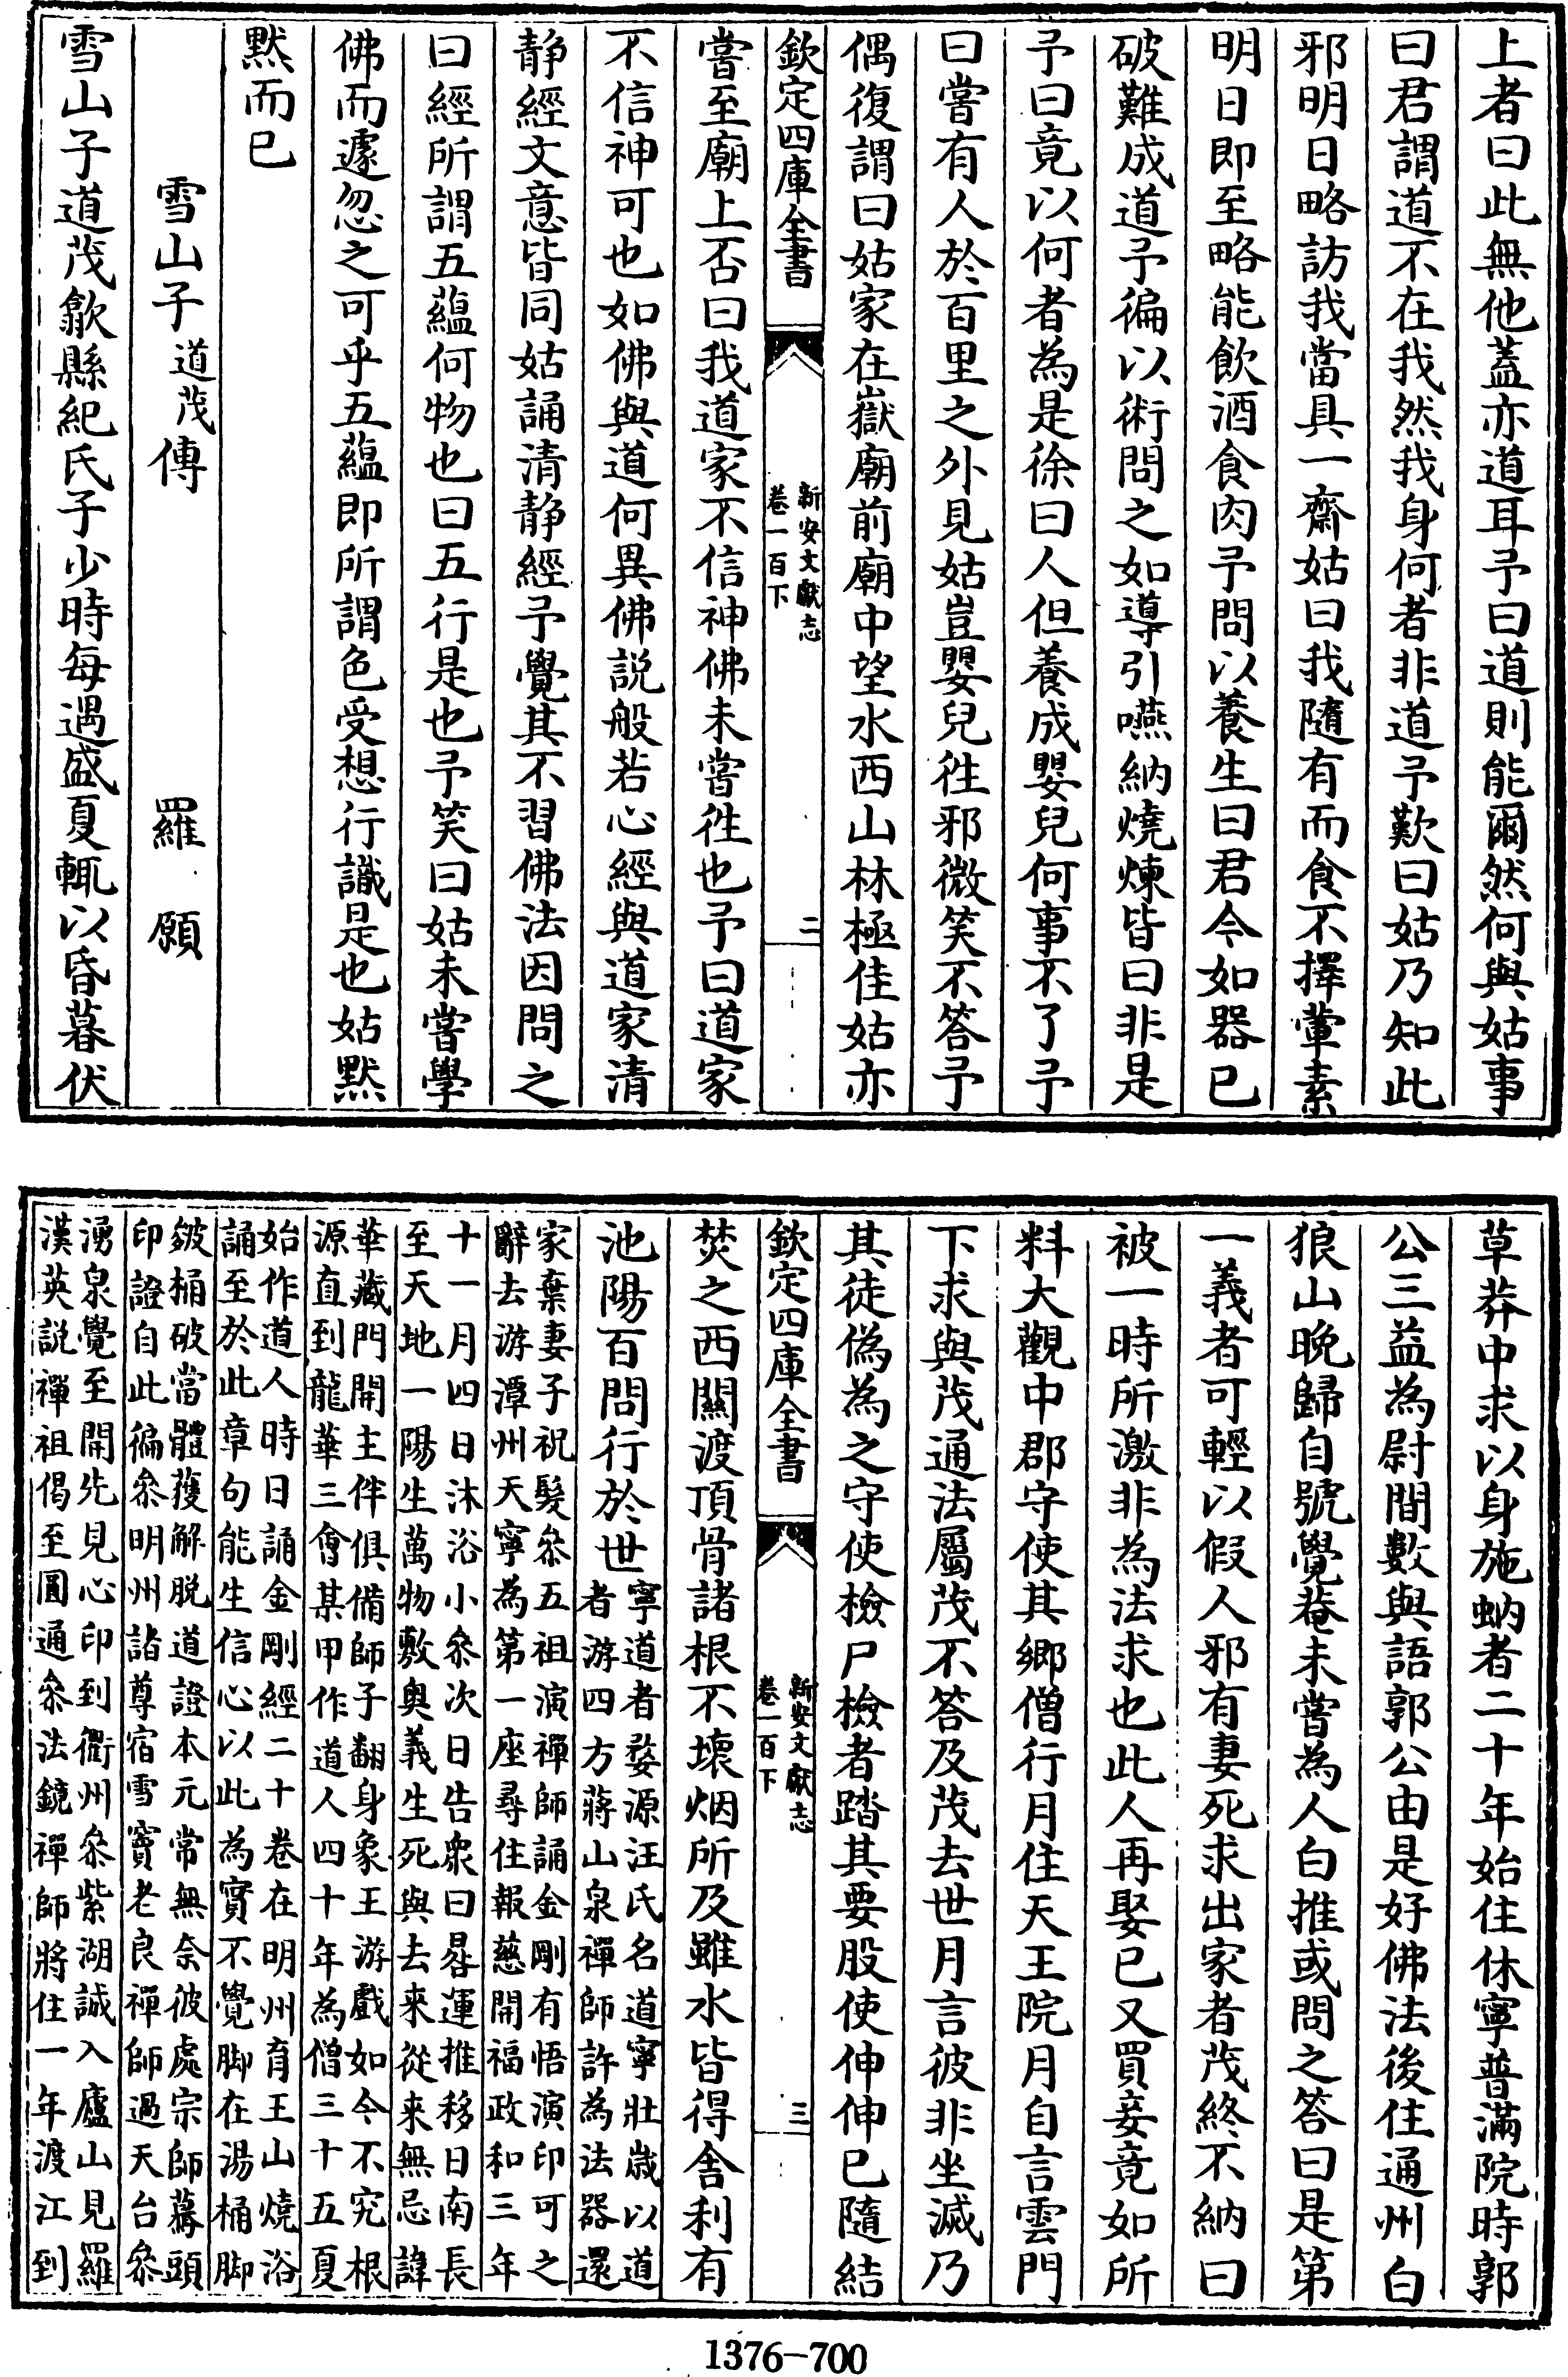 上者曰此無他蓋亦道耳予曰道則能爾然何與姑事
曰君謂道不在我然我身何者非道予歎曰姑乃知此
邪明日略訪我當具一齋姑曰我隨有而食不擇葷素
明日即至略能飲酒食肉予問以養生曰君今如器已
破難成道予徧以術問之如導引嚥納燒煉皆曰非是
予曰竟以何者為是徐曰人但養成嬰兒何事不了予
曰嘗有人於百里之外見姑豈嬰兒徃邪微笑不答予
偶復謂曰姑家在嶽廟前廟中望水西山林極佳姑亦
欽定四庫全書
新安文獻志
卷一百下
二
嘗至廟上否曰我道家不信神佛未嘗徃也予曰道家
不信神可也如佛與道何異佛説般若心經與道家清
静經文意皆同姑誦清静經予覺其不習佛法因問之
曰經所謂五藴何物也曰五行是也予笑曰姑未嘗學
佛而遽忽之可乎五藴即所謂色受想行識是也姑默
默而已
雪山子道茂傳　羅願
雪山子道茂歙縣紀氏子少時每遇盛夏輒以昏暮伏
草莽中求以身施蚋者二十年始住休寧普滿院時郭
公三益為尉間數與語郭公由是好佛法後住通州白
狼山晚歸自號覺菴未嘗為人白推或問之答曰是第
一義者可輕以假人邪有妻死求出家者茂終不納曰
被一時所激非為法求也此人再娶已又買妾竟如所
料大觀中郡守使其鄉僧行月住天王院月自言雲門
下求與茂通法屬茂不答及茂去世月言彼非坐滅乃
其徒偽為之守使檢尸檢者踏其要股使伸伸已隨結
欽定四庫全書
新安文獻志
卷一百下
三
焚之西關渡頂骨諸根不壞烟所及雖水皆得舍利有
池陽百問行於世
寧道者婺源汪氏名道寧壯歳以道
者游四方蔣山泉禪師許為法器還
家棄妻子祝髮叅五祖演禪師誦金剛有悟演印可之
辭去游潭州天寧為第一座尋住報慈開福政和三年
十一月四日沐浴小叅次日告衆曰晷運推移日南長
至天地一陽生萬物敷奥義生死與去來從来無忌諱
華藏門開主伴俱備師子翻身象王游戲如今不究根
源直到龍華三會某甲作道人四十年為僧三十五夏
始作道人時日誦金剛經二十卷在明州育王山燒浴
誦至於此章句能生信心以此為實不覺脚在湯桶脚
皴桶破當體獲解脱道證本元常無奈彼處宗師驀頭
印證自此徧叅明州諸尊宿雪竇老良禪師過天台叅
湧泉覺至開先見心印到衢州叅紫湖誠入廬山見羅
漢英説禪祖偈至圓通叅法鏡禪師將住一年渡江到
1376-700